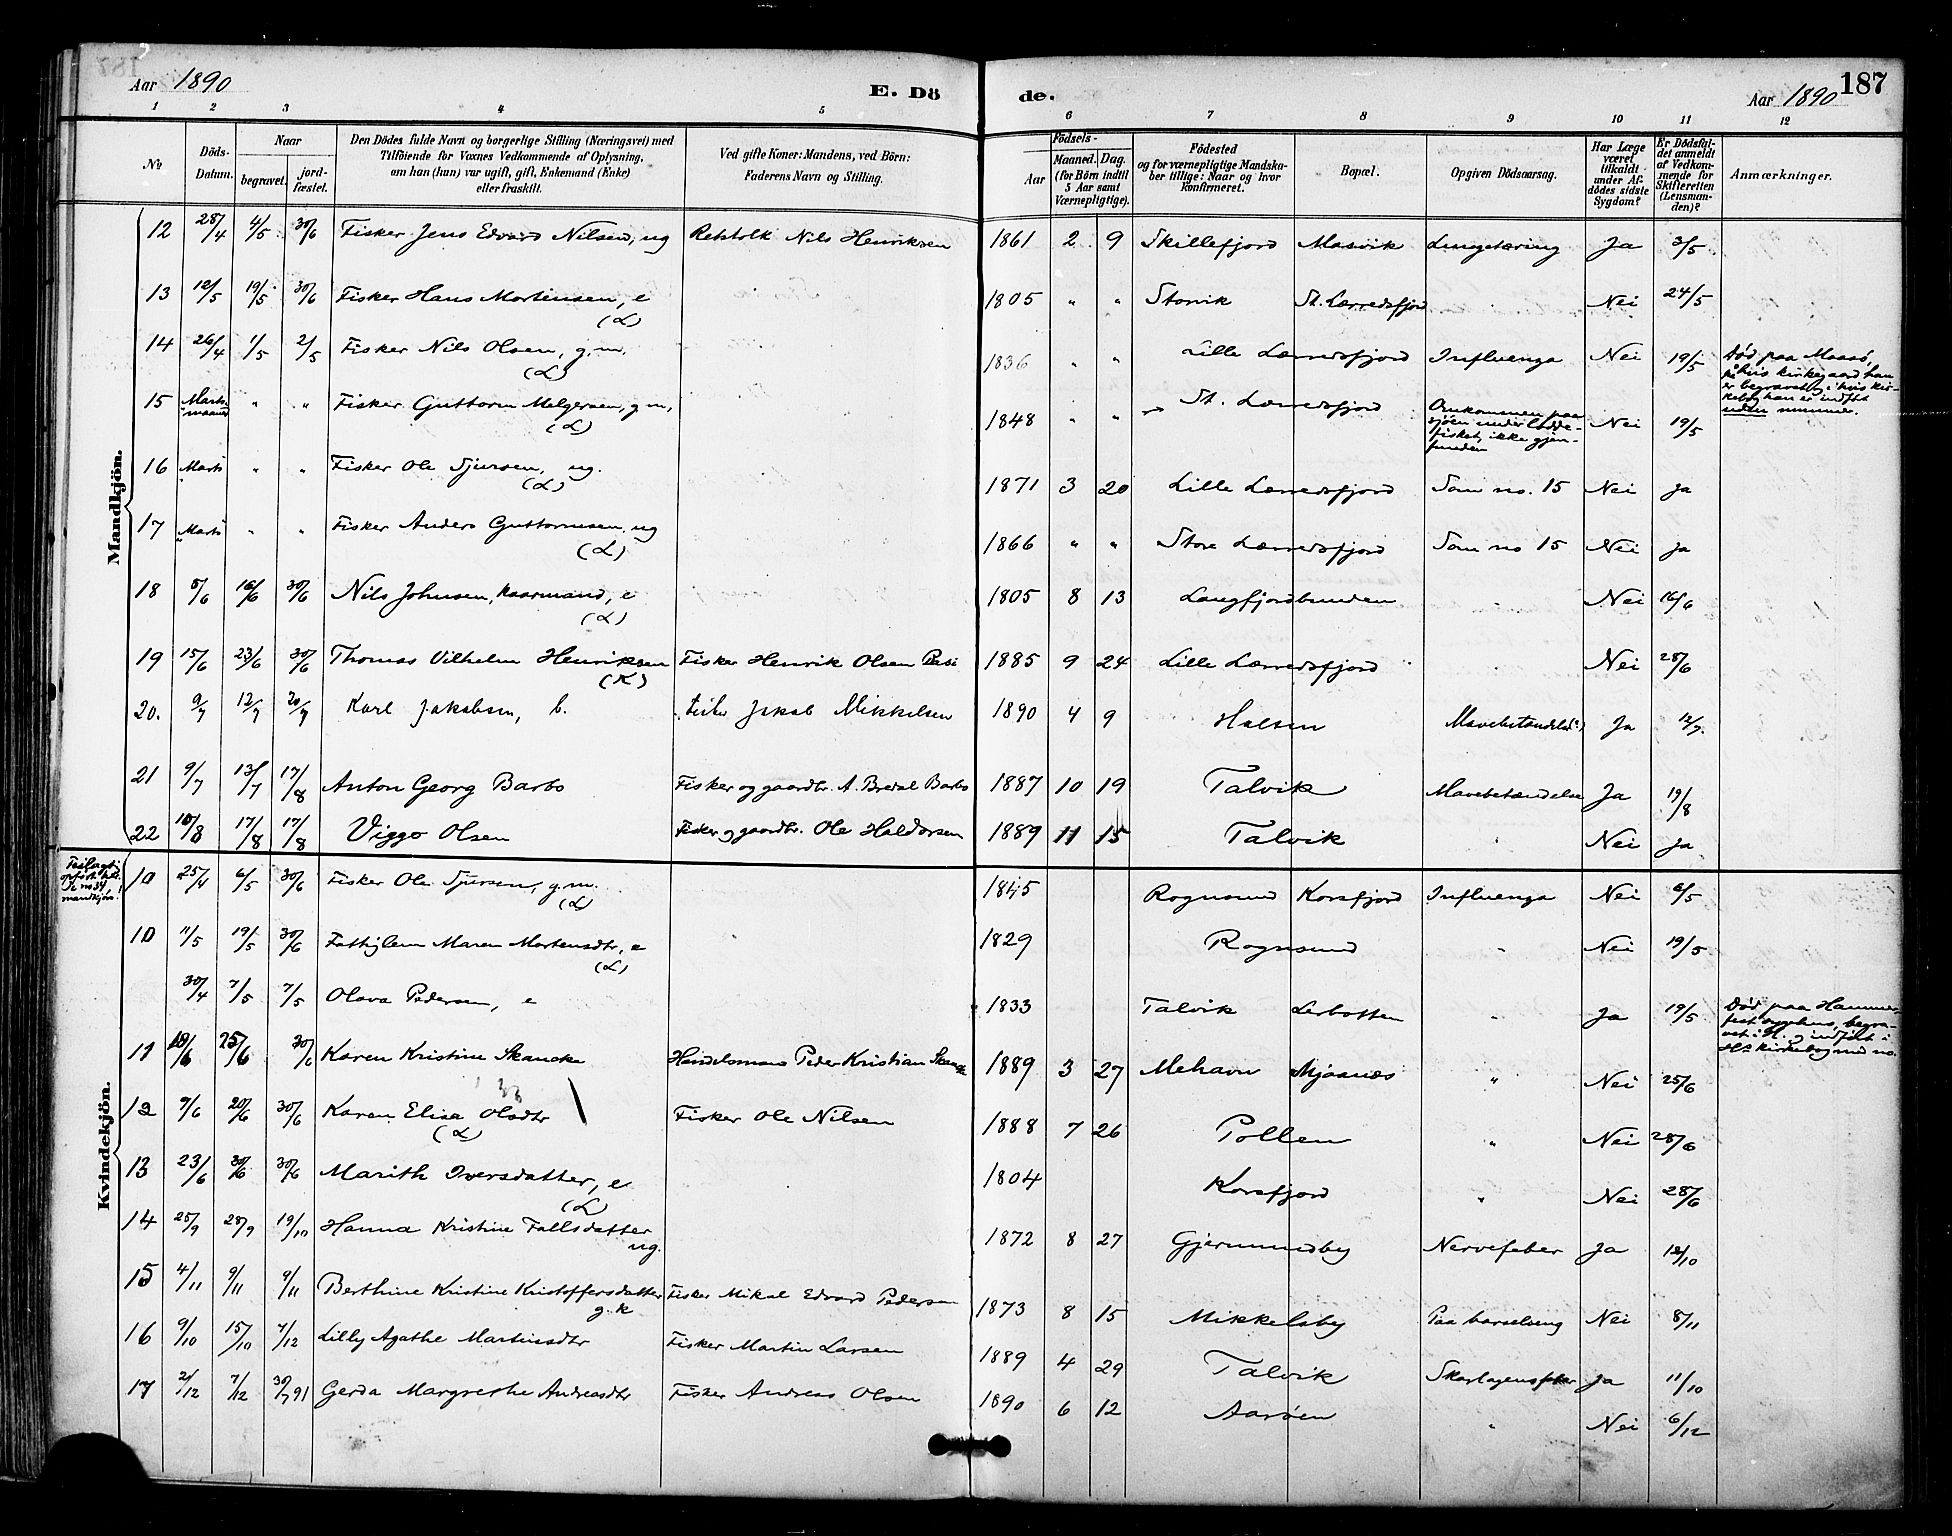 Aar 1890
E. Dö
de.
187
Aar 1890
1 2 3 4 5 6 7 8 9 10 11 12
No.
Döds-
Datum.
Naar
begravet.
jord-
fæstet.
Den Dödes fulde Navn og borgerlige Stilling (Næringsvei) med
Tilföiende for Voxnes Vedkommende af Oplysning,
om han (hun) var ugift, gift, Enkemand (Enke)
eller fraskilt.
Ved gifte Koner: Mandens, ved Börn:
Faderens Navn og Stilling.
Födsels-
Aar
Maaned. Dag.
(for Börn indtil
5 Aar samt
Værnepligtige).
Födested
og for værnepligtige Mandska-
ber tillige: Naar og hvor
konfirmeret.
Bopæl.
Opgiven Dödsaarsag.
Har Læge
været
tilkaldt
under Af-
dödes sidste
Sygdom?
Er Dödsfal-
det anmeldt
af Vedkom-
mende for
Skifteretten
(Lensman-
den)?
Anmærkninger.
Mandkjön.
12 28/4 4/5 30/6 Fisker Jens Edvard Nilsen, ug Nils Henriksen 1861 2 9 Skillefjord Masvik Lungetæring Ja 3/5
13 12/5 19/5 30/6 Fisker Hans Mortensen, e (L) 1805 " " Storvik St. Lerredsfjord " Nei 24/5
14 26/4 1/5 2/5 Fisker Nils Olsen, g.m. (L) 1836 " " Lille Lerredsfjord Influenza Nei 19/5 Död paa Maasö,
på hvis kirkegaard han
er begravet og i hvis kir-
kebog han er indfört
uden nummer.
15 Marts maaned " " Fisker Guttorm Melgersen, g.m. (L) 1848 " " St. Lerredsfjord Omkommen paa
sjöen under lodde-
fisket, ikke gjen-
funden Nei 19/5
16 Marts " " Fisker Ole Sjursen, ug. (L) 1871 3 20 Lille Lerredsfjord Som no. 15 Nei Ja
17 Marts " " Fisker Anders Guttormsen, ug (L) 1866 " " Store Lerredsfjord Som no 15 Nei Ja
18 5/6 16/6 30/6 Nils Johnsen, kaarmand, e (L) 1805 8 13 Langfjordbunden " Nei 16/6
19 15/6 23/6 30/6 Thomas Vilhelm Henriksen (K) Fisker Henrik Olsen 1885 9 24 Lille Lerredsfjord " Nei 28/6
20. 9/7 12/7 20/7 Karl Jakobsen, b. Fisker Jakob Mikkelsen 1890 4 9 Halsen Mavebetændelse Ja 12/7
21 9/7 13/7 17/8 Anton Georg Barbo Fisker og gaardbr. A. Bredal Barbo 1887 10 19 Talvik Mavebetændelse Ja 19/8
22 10/8 17/8 17/8 Viggo Olsen Fisker og gaardbr. Ole Haldorsen 1889 11 15 Talvik " Nei Ja
Kvindekjön.
Feilagtig
opfört
mandkjön!
10 25/4 6/5 30/6 Fisker Ole Sjursen, g.m. (L) 1845 Rognsund Korsfjord Influenza Nei 6/5
10 11/5 19/5 30/6 Fattiglem Maren Mortensdtr, e (L) 1829 Rognsund " Nei 19/5
30/4 7/5 7/5 Olava Pedersen, e 1833 Talvik Lerbotten " Ja 19/5 Död paa Hammer-
fest sygehus, begra-
vet i H. og indfört i
Hs kirkebog med no.
11 18/6 25/6 30/6 Karen Kristine Skancke Handelsmand Peder Kristian Skancke 1889 3 27 Mehavn Mjaanes " Nei 25/6
12 9/6 20/6 30/6 Karen Elisa Olsdtr (L) Fisker Ole Nilsen 1888 7 26 Pollen " Nei 28/6
13 23/6 30/6 30/6 Marith Iversdatter, e (L) 1804 Korsfjord " Nei 28/6
14 25/9 28/9 19/10 Hanna Kristine Fallsdatter ug. 1872 8 27 Gjermundsby Nervefeber Ja 12/10
15 4/11 9/11 9/11 Berthine Kristine Kristoffersdatter g.k Fisker Mikal Edvard Pedersen 1873 8 15 Mikkelsby Paa barselseng Nei 8/11
16 9/10 15/10 7/12 Lilly Agathe Martinsdtr Fisker Martin Larsen 1889 4 29 Talvik Skarlagensfeber Ja 11/10
17 2/12 7/12 30/7 91 Gerda Margrethe Andreasdtr Fisker Andreas Olsen 1890 6 12 Aaröen " Nei 6/12